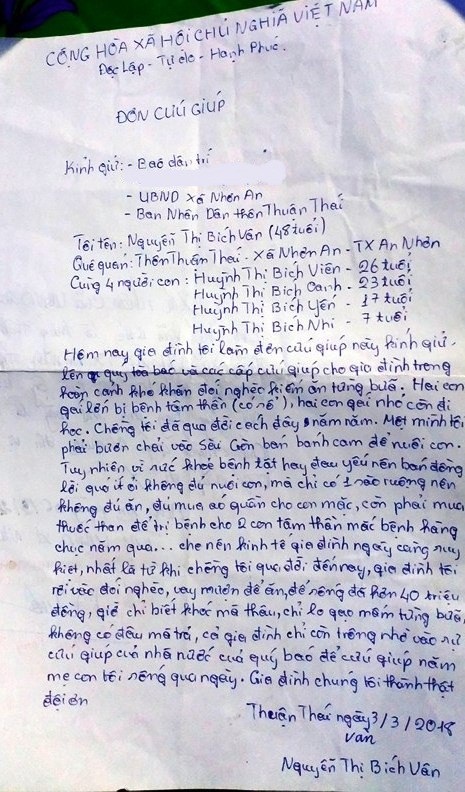 CỘNG HÒA XÃ HỘI CHỦ NGHĨA VIỆT NAM
Độc Lập - Tự do - Hạnh Phúc.
ĐƠN CỨU GIÚP
Kính gửi: - Báo dân trí
- UBND xã Nhơn An
- Ban Nhân Dân thôn Thuận Thái
Tôi tên: Nguyễn Thị Bích Vân (48 tuổi)
Quê quán: Thôn Thuận Thái - Xã Nhơn An - TX An Nhơn
Cùng 4 người con: Huỳnh Thị Bích Viên - 26 tuổi
Huỳnh Thị Bích Oanh - 23 tuổi
Huỳnh Thị Bích Yến - 17 tuổi
Huỳnh Thị Bích Nhi - 7 tuổi
Hôm nay gia đình tôi làm đơn cứu giúp này kính gửi
lên quý tòa báo và các cấp cứu giúp cho gia đình trong
hoàn cảnh khó khăn đói nghèo kiếm ăn từng bữa. Hai con
gái lớn bị bệnh tâm thần (có sổ), hai con gái nhỏ còn đi
học. Chồng tôi đã qua đời cách đây năm năm. Một mình tôi
phải bươn chải vào Sài Gòn bán bánh cam để nuôi con.
Tuy nhiên vì sức khỏe bệnh tật hay đau yếu nên bán đồng
lời quá ít ỏi không đủ nuôi con, mà chỉ có 1 sào ruộng nên
không đủ ăn, đủ mua áo quần cho con mặc, còn phải mua
thuốc than để trị bệnh cho 2 con tâm thần mắc bệnh hàng
chục năm qua... cho nên kinh tế gia đình ngày càng suy
kiệt, nhất là từ khi chồng tôi qua đời đến nay, gia đình tôi
rơi vào đói nghèo, vay mượn để ăn, để sống đã hơn 40 triệu
đồng, giờ chỉ biết khóc mà thôi, chỉ lo gạo mắm từng bữa
không có đâu mà trả, cả gia đình chỉ còn trông nhờ vào sự
cứu giúp của nhà nước của quý báo để cứu giúp năm
mẹ con tôi sống qua ngày. Gia đình chúng tôi thành thật
đội ơn
Thuận Thái ngày 3/3/2018
Vân
Nguyễn Thị Bích Vân